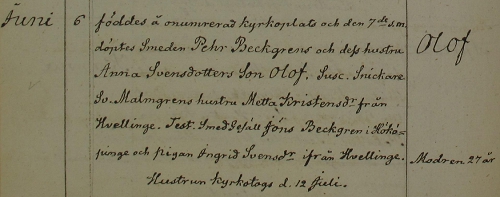 Juni 6 föddes å onumrerad kyrkoplats och den 7de s.m.
döptes Smeden Pehr Beckgrens och dess hustru Olof
Anna Svensdotters Son Olof. Susc. Snickare
Sv. Malmgrens hustru Metta Kristensdr från
Hvellinge. Test. Smedgesäll Jöns Beckgren i Hökö-
pinge och pigan Ingrid Svensdr ifrån Hvellinge. Modren 27 år
Hustrun kyrkotogs d. 12 Juli.